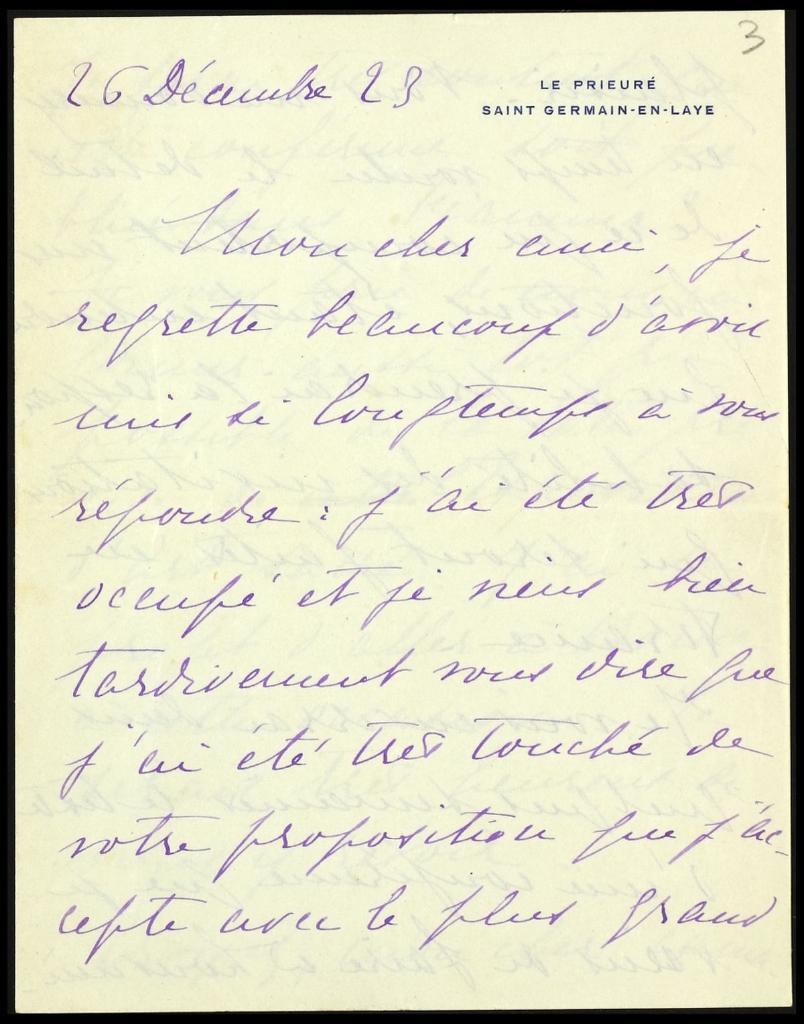 3
26 Décembre 23
LE PRIEURÉ
SAINT GERMAIN-EN-LAYE
Mon cher ami, je
regrette beaucoup d'avoir
mis si longtemps à vous
répondre : j'ai été très
occupé et je viens bien
tardivement vous dire que
j'ai été très touché de
votre proposition que j'ac-
cepte avec le plus grand